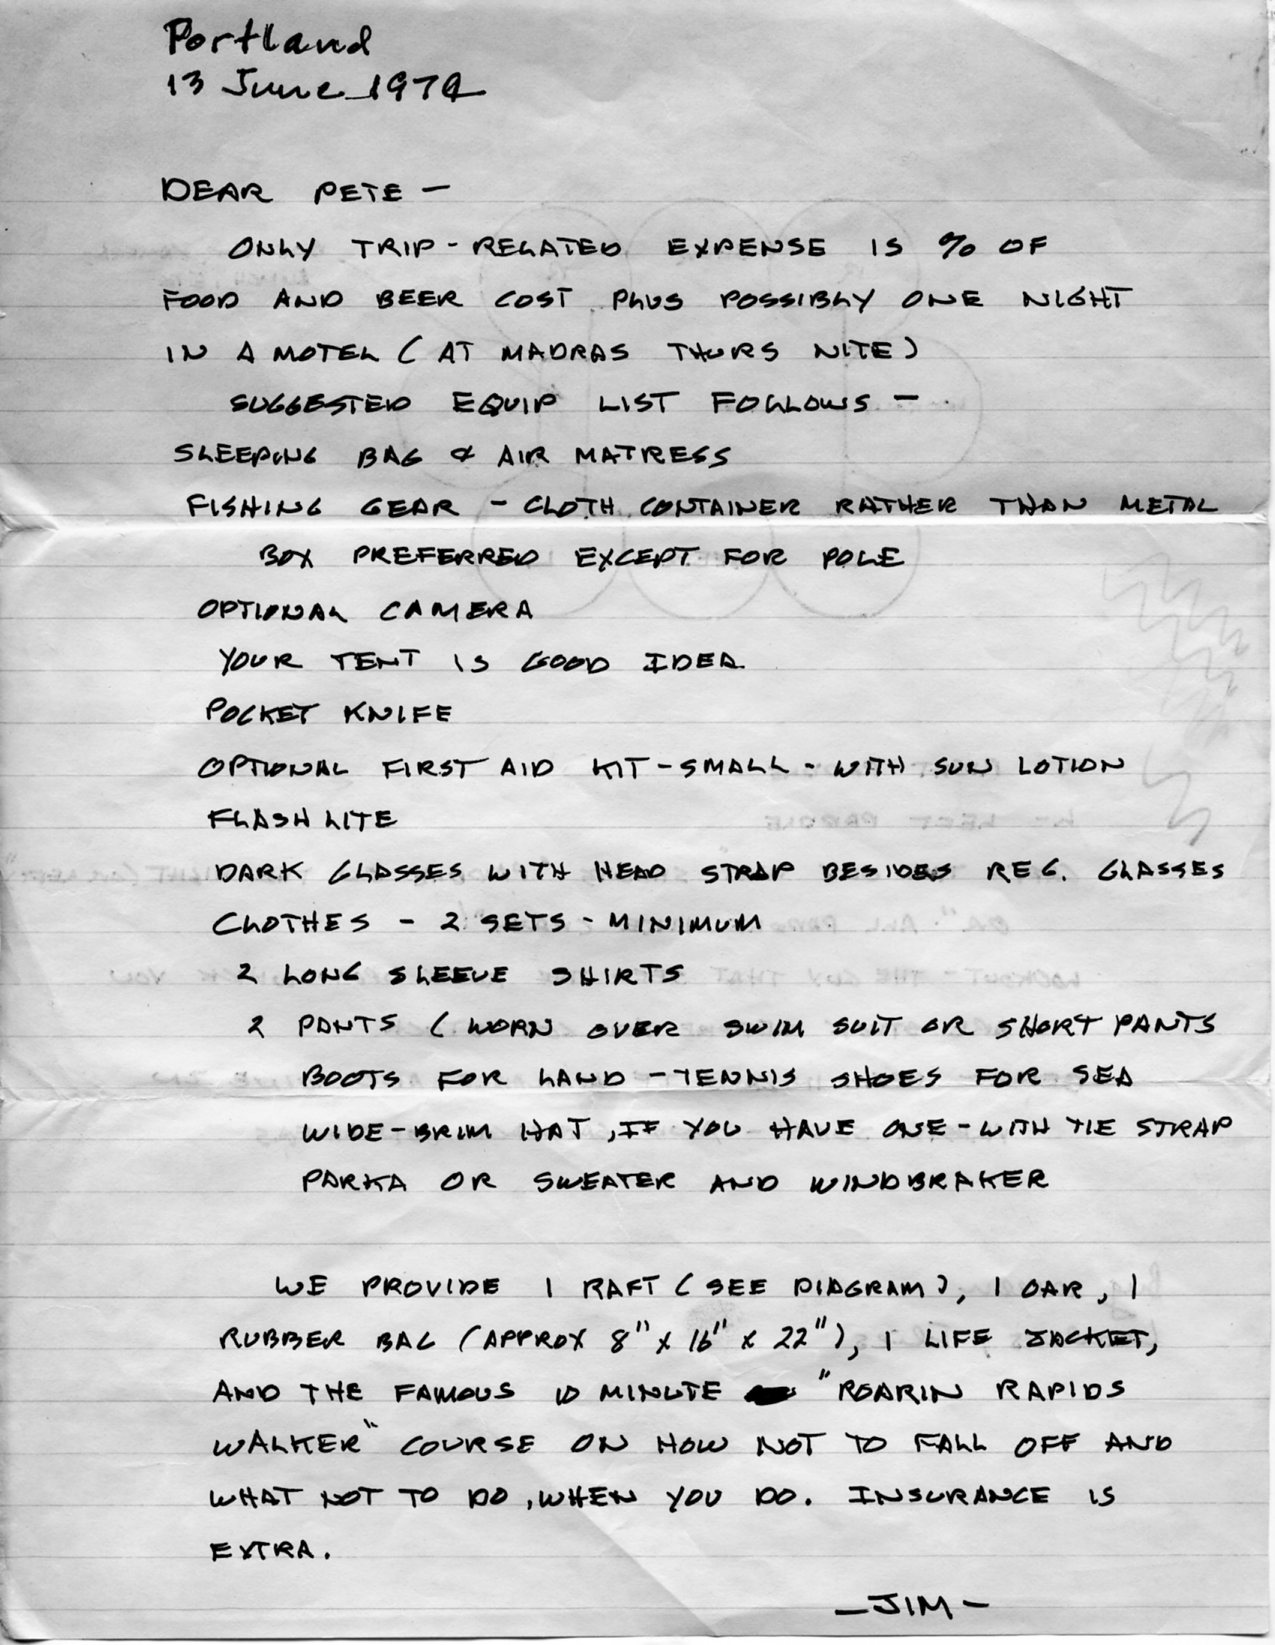 Portland
13 June 1974
DEAR PETE —
ONLY TRIP-RELATED EXPENSE IS % OF
FOOD AND BEER COST PLUS POSSIBLY ONE NIGHT
IN A MOTEL (AT MADRAS THURS NITE)
SUGGESTED EQUIP LIST FOLLOWS —
SLEEPING BAG & AIR MATRESS
FISHING GEAR - CLOTH CONTAINER RATHER THAN METAL
BOX PREFERRED EXCEPT FOR POLE
OPTIONAL CAMERA
YOUR TENT IS GOOD IDEA
POCKET KNIFE
OPTIONAL FIRST AID KIT - SMALL - WITH SUN LOTION
FLASH LITE
DARK GLASSES WITH HEAD STRAP BESIDES REG. GLASSES
CLOTHES - 2 SETS - MINIMUM
2 LONG SLEEVE SHIRTS
2 PANTS (WORN OVER SWIM SUIT OR SHORT PANTS
BOOTS FOR LAND - TENNIS SHOES FOR SEA
WIDE-BRIM HAT, IF YOU HAVE ONE - WITH TIE STRAP
PARKA OR SWEATER AND WINDBRAKER
WE PROVIDE 1 RAFT (SEE DIAGRAM), 1 OAR, 1
RUBBER BAG (APPROX 8" X 16" X 22"), 1 LIFE JACKET,
AND THE FAMOUS 10 MINUTE "ROARIN RAPIDS
WALKER" COURSE ON HOW NOT TO FALL OFF AND
WHAT NOT TO DO, WHEN YOU DO. INSURANCE IS
EXTRA.
— JIM —